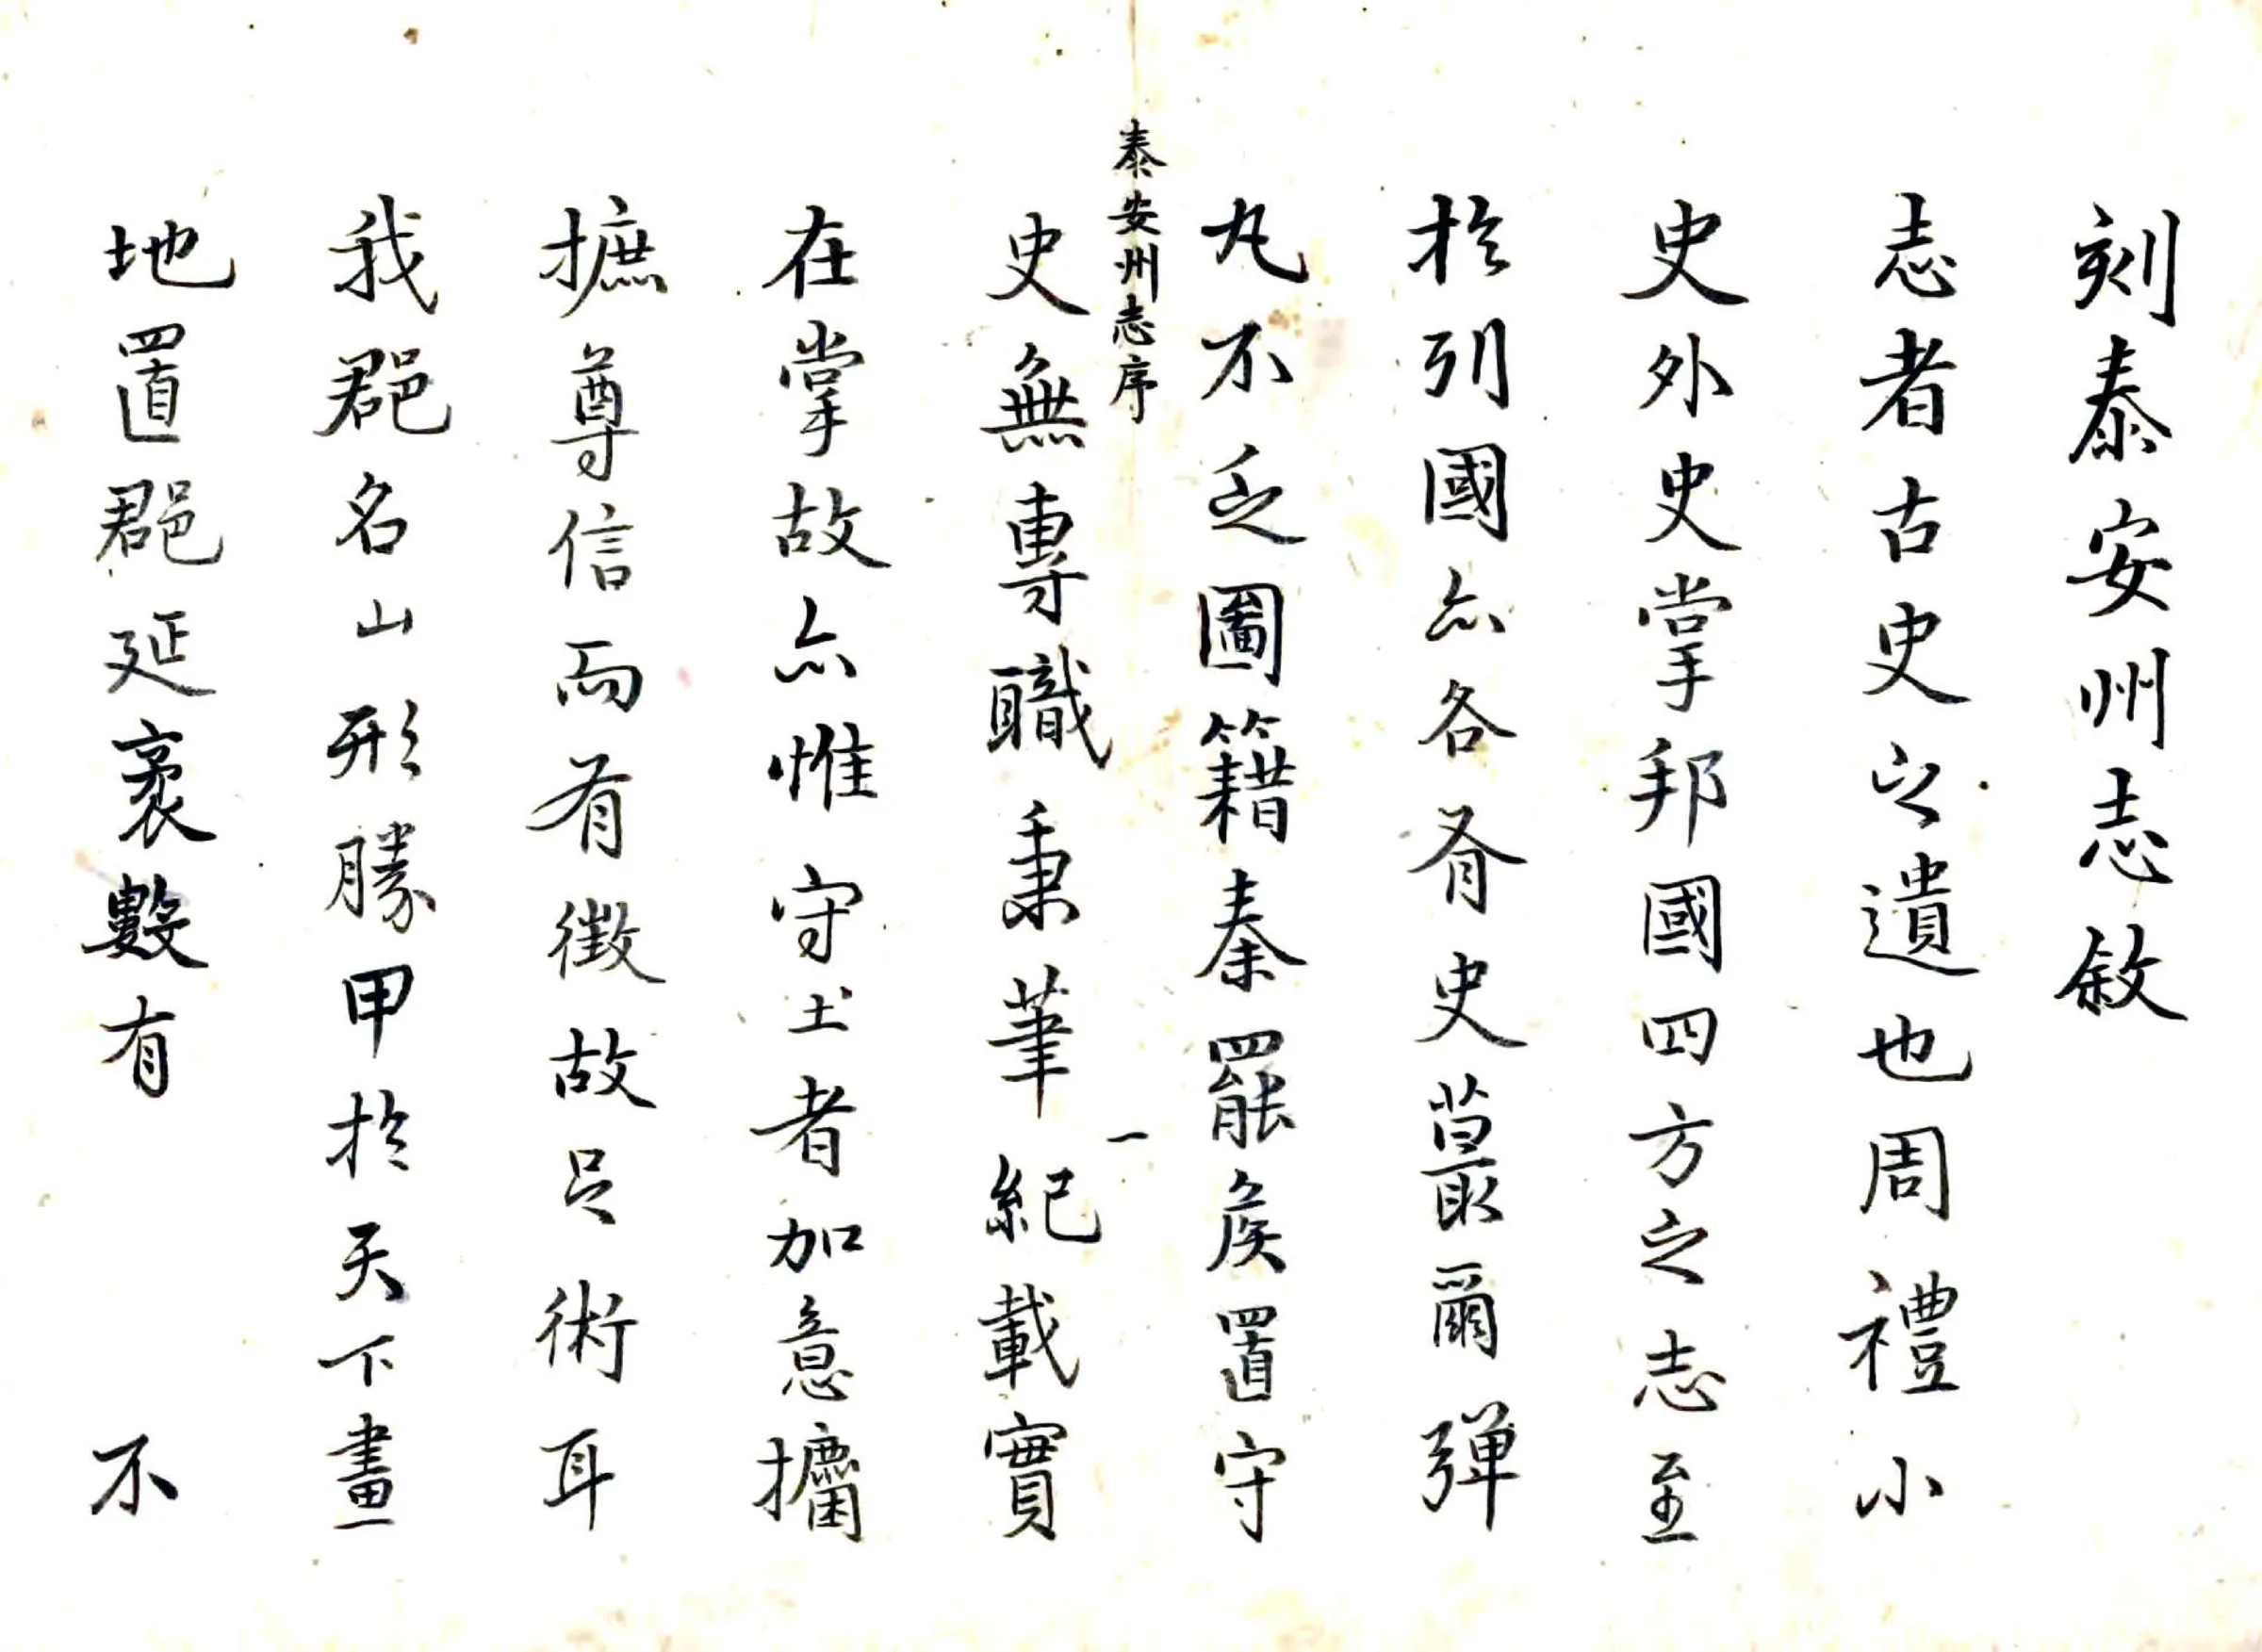 刻泰安州志敘
志者古史之遺也周禮小
史外史掌邦國四方之志至
於列國亦各有史蕞爾彈
丸不乏圖籍秦罷侯置守
泰安州志序
一
史無專職秉筆紀載實
在掌故亦惟守土者加意攟
摭尊信而有徵故足術耳
我郡名山形勝甲於天下畫
地置郡延袤數有 不